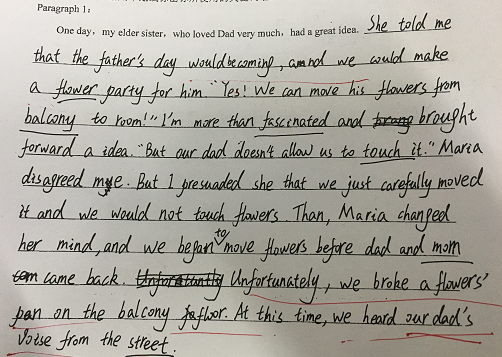 Paragraph 1:
One day, my elder sister, who loved Dad very much, had a great idea. She told me
that the father's day would be coming, and we could make
a flower party for him. "Yes! We can move his flowers from
balcony to room!" I'm more than fascinated and brought
forward a idea. "But our dad doesn't allow us to touch it." Maria
disagreed me. But I presuaded she that we just carefully moved
it and we would not touch flowers. Than, Maria changed
her mind, and we began to move flowers before dad and mom
came back. Unfortunately, we broke a flowers'
pan on the balcony floor. At this time, we heard our dad's
voise from the street.